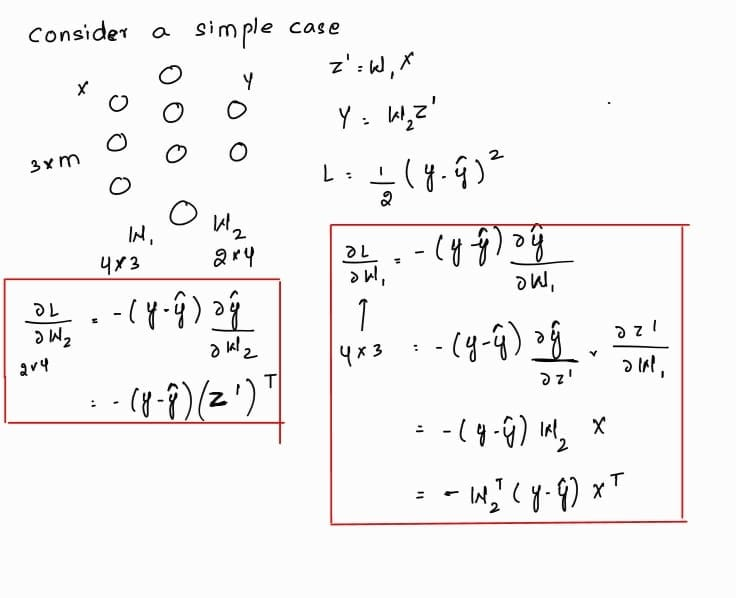 Consider a simple case
x
y
3×m
W₁
4×3
W₂
2×4
z' = W₁x
Y = W₂z'
L = 1/2 (y-ŷ)²
∂L/∂W₂ = -(y-ŷ) ∂ŷ/∂W₂
2×4
= -(y-ŷ)(z')ᵀ
∂L/∂W₁ = -(y-ŷ) ∂ŷ/∂W₁
↑
4×3 = -(y-ŷ) ∂ŷ/∂z' × ∂z'/∂W₁
= -(y-ŷ) W₂ x
= - W₂ᵀ(y-ŷ) xᵀ